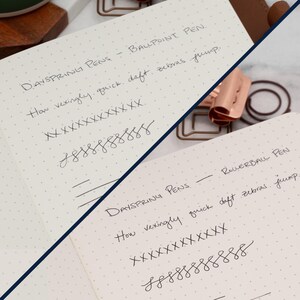 Dayspring Pens – Ballpoint Pen
How vexingly quick daft zebras jump.
xxxxxxxxxxxx
Dayspring Pens — Rollerball Pen
How vexingly quick daft zebras jump.
xxxxxxxxxxxx